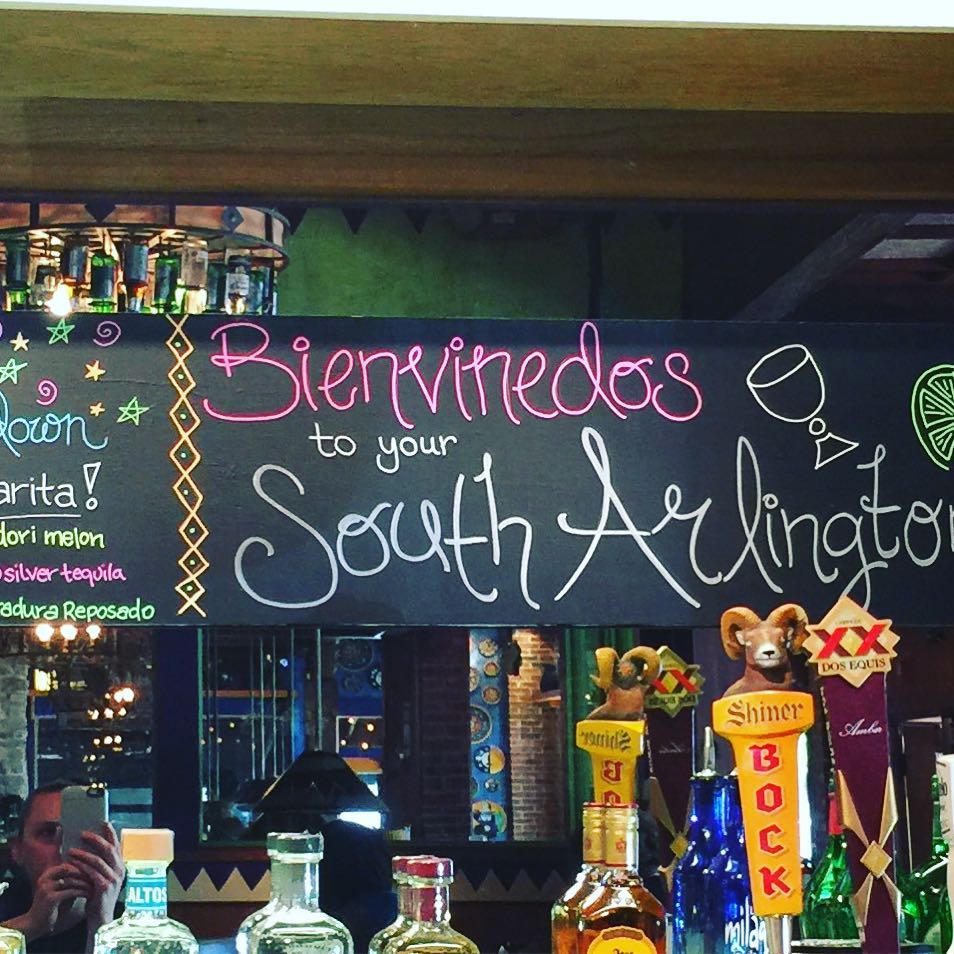 Bienvinedos
to your
South Arlington
down
arita!
dori melon
silver tequila
adura Reposado
XX
DOS EQUIS
Amber
Shiner
BOCK
ALTOS